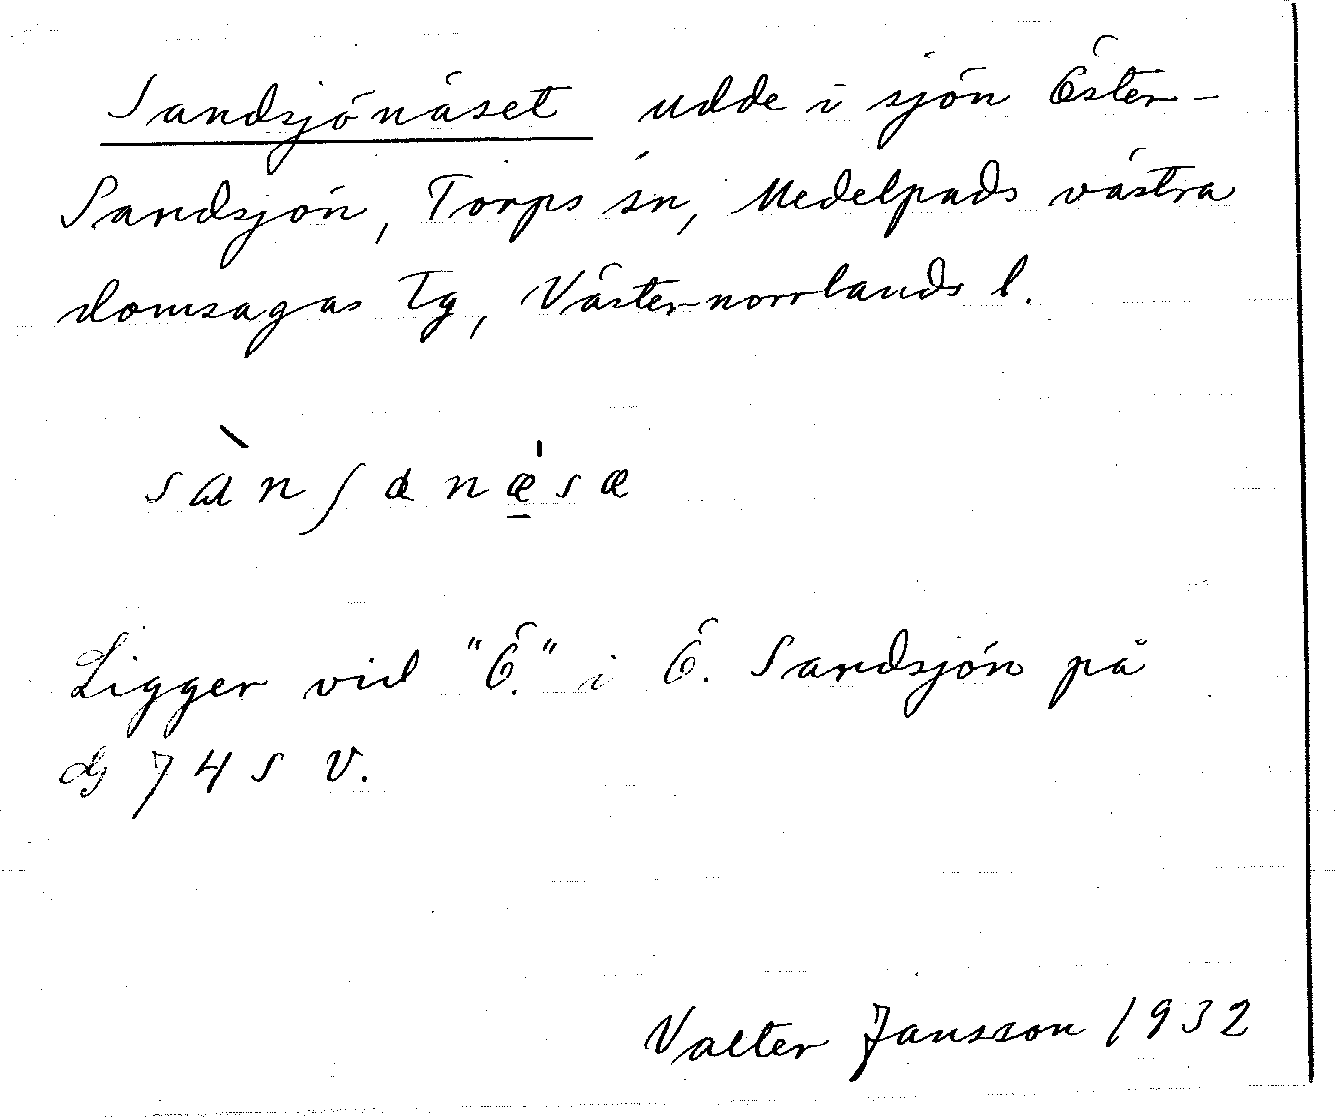 Sandsjönäset udde i sjön Öster-
Sandsjön, Torps sn, Medelpads västra
domsagas Tg, Västernorrlands l.
sànʃɑnæ̱̍sæ
Ligger vid "Ö." i Ö. Sandsjön på
dg 74 S V.
Valter Jansson 1932